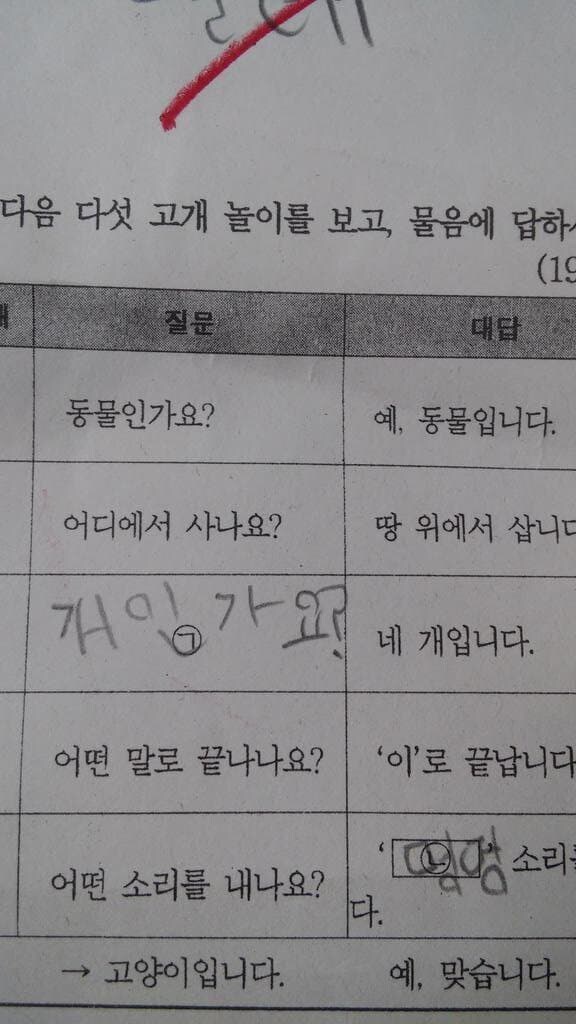 다음 다섯 고개 놀이를 보고, 물음에 답하
(19
질문 대답
동물인가요? 예, 동물입니다.
어디에서 사나요? 땅 위에서 삽니
개인가요? ㉠ 네 개입니다.
어떤 말로 끝나나요? ‘이’로 끝납니다
어떤 소리를 내나요? ‘㉡ 멍멍’ 소리를
다.
→ 고양이입니다. 예, 맞습니다.